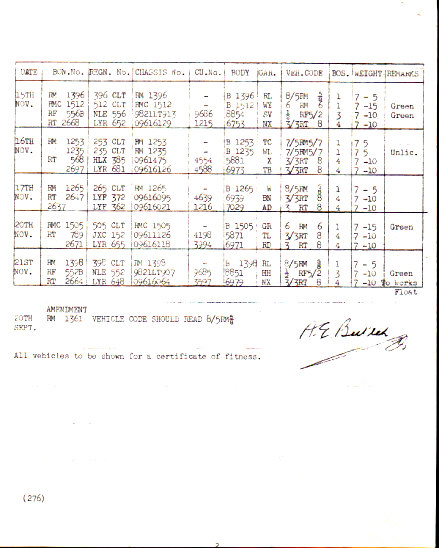 DATE BON.No. REGN. No. CHASSIS No. CU.No. BODY GAR. VEH.CODE BOS. WEIGHT REMARKS
15TH RM 1396 396 CLT RM 1396 - B 1396 RL 8/5RM 1 7 - 5
NOV. RMC 1512 512 CLT RMC 1512 - B 1512 WY 6 RM 6 1 7 -15 Green
RF 556B NLE 556 9821LT913 9686 8854 SV RF5/2 3 7 -10 Green
RT 2668 LYR 652 09616129 1215 6753 NX 3/3RT 8 4 7 -10
16TH RM 1253 253 CLT RM 1253 - B 1253 TC 7/5RM5/7 1 7 5
NOV. 1235 235 CLT RM 1235 - B 1235 WL 7/5RM5/7 1 7 5 Unlic.
RT 568 HLX 385 0961475 4554 5881 X 3/3RT 8 4 7 -10
2697 LYR 681 09616126 4588 6973 TB 3/3RT 8 4 7 -10
17TH RM 1265 265 CLT RM 1265 - B 1265 W 8/5RM 1 7 - 5
NOV. RT 2647 LYF 372 09616095 4639 6939 BN 3/3RT 8 4 7 -10
2637 LYF 362 09616021 1216 7029 AD 3 RT 8 4 7 -10
20TH RMC 1505 505 CLT RMC 1505 - B 1505 GR 6 RM 6 1 7 -15 Green
NOV. RT 789 JXC 152 09611126 4198 5871 TL 3/3RT 8 4 7 -10
2671 LYR 655 09616118 3994 6971 RD 3 RT 8 4 7 -10
21ST RM 1398 398 CLT RM 1398 - B 1398 RL 8/5RM 1 7 - 5
NOV. RF 552B NLE 552 9821LT907 9685 8851 HH RF5/2 3 7 -10 Green
RT 2664 LYR 648 09616064 3597 6979 NX 3/3RT 8 4 7 -10 To Works
Float
AMENDIMENT
20TH RM 1361 VEHICLE CODE SHOULD READ 8/5RM
SEPT.
All vehicles to be shown for a certificate of fitness.
(276)